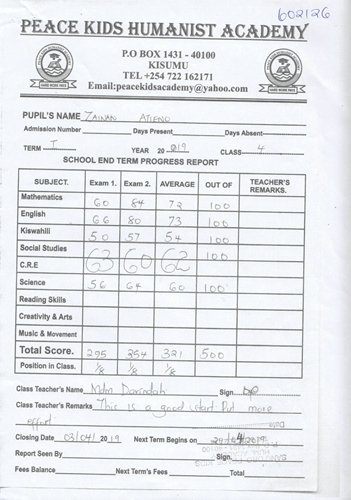 602126
PEACE KIDS HUMANIST ACADEMY
P.O BOX 1431 - 40100
KISUMU
TEL +254 722 162171
Email:peacekidsacademy@yahoo.com
PUPIL'S NAME ZAINAB ATIENO
Admission Number Days Present Days Absent
TERM I YEAR 2019 CLASS 4
SCHOOL END TERM PROGRESS REPORT
SUBJECT. Exam 1. Exam 2. AVERAGE OUT OF TEACHER'S REMARKS.
Mathematics 60 84 72 100
English 66 80 73 100
Kiswahili 50 57 54 100
Social Studies 100
C.R.E 63 60 62
Science 56 64 60 100
Reading Skills
Creativity & Arts
Music & Movement
Total Score. 295 354 321 500
Position in Class. 1/8 1/8 1/8
Class Teacher's Name Mdm Sign.
Class Teacher's Remarks This is a good start Put more
effort
Closing Date 03/04/2019 Next Term Begins on 29/4/2019
Report Seen By Sign.
Fees Balance Next Term's Fees Total